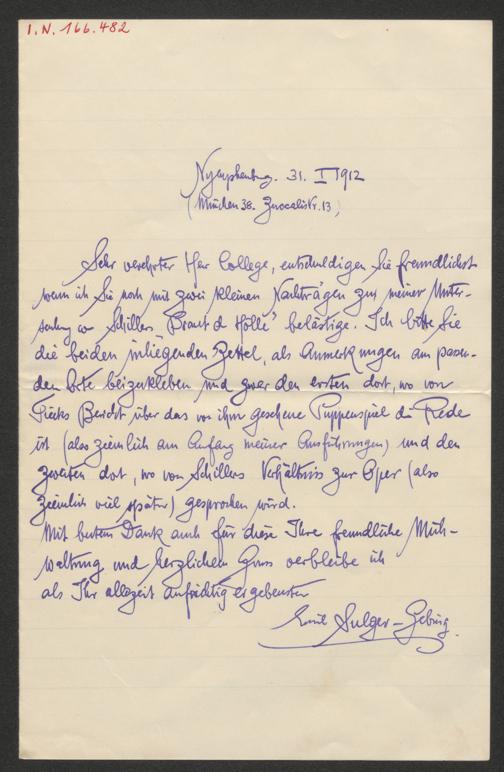 I.N. 166.482
Nymphenburg. 31. I 1912
(München 38. Zuccalistr. 13)
Sehr verehrter Herr College, entschuldigen Sie freundlichst
wenn ich Sie noch mit zwei kleinen Nachträgen zu meiner Unter-
suchung Schillers Braut d Hölle" belästige. Ich bitte Sie
die beiden inliegenden Zettel, als Anmerkungen am passen-
den Orte beizukleben und zwar den ersten dort, wo von
Tiecks Bericht über das von ihm gesehene Puppenspiel die Rede
ist (also ziemlich am Anfang meiner Ausführungen) und den
zweiten dort, wo von Schillers Verhältniss zur Oper (also
ziemlich viel später) gesprochen wird.
Mit bestem Dank auch für diese Ihre freundliche Müh-
waltung und herzlichem Gruss verbleibe ich
als Ihr allezeit aufrichtig ergebenster
Emil Sulger-Gebing.